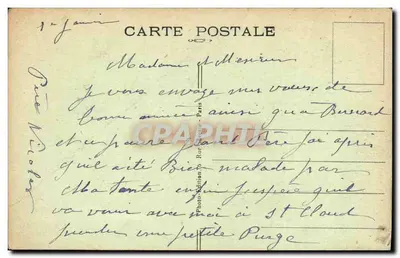 1er Janvier
CARTE POSTALE
Madame et Messieurs
Je vous envoye mes voeux de
bonne année ainsi qu'a Bernard
et a pauvre grand Père j'ai apris
qu'il a été Bien malade par
Ma tante enfin j'espère qu'il
va vous avec moi à St Cloud
prendre une petite Purge
Père Nicolas
CPARAMA